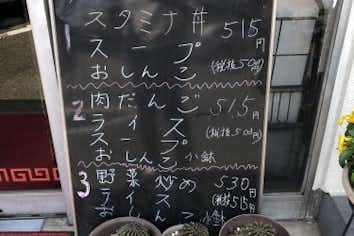 1 スタミナ丼 515円
スープ
おしんこ (税抜500円)
2 肉だんご 515円
ライス (税抜500円)
スープ
おしんこ 小鉢
3 野菜炒め 530円
ライス (税抜515円)
おしんこ 小鉢